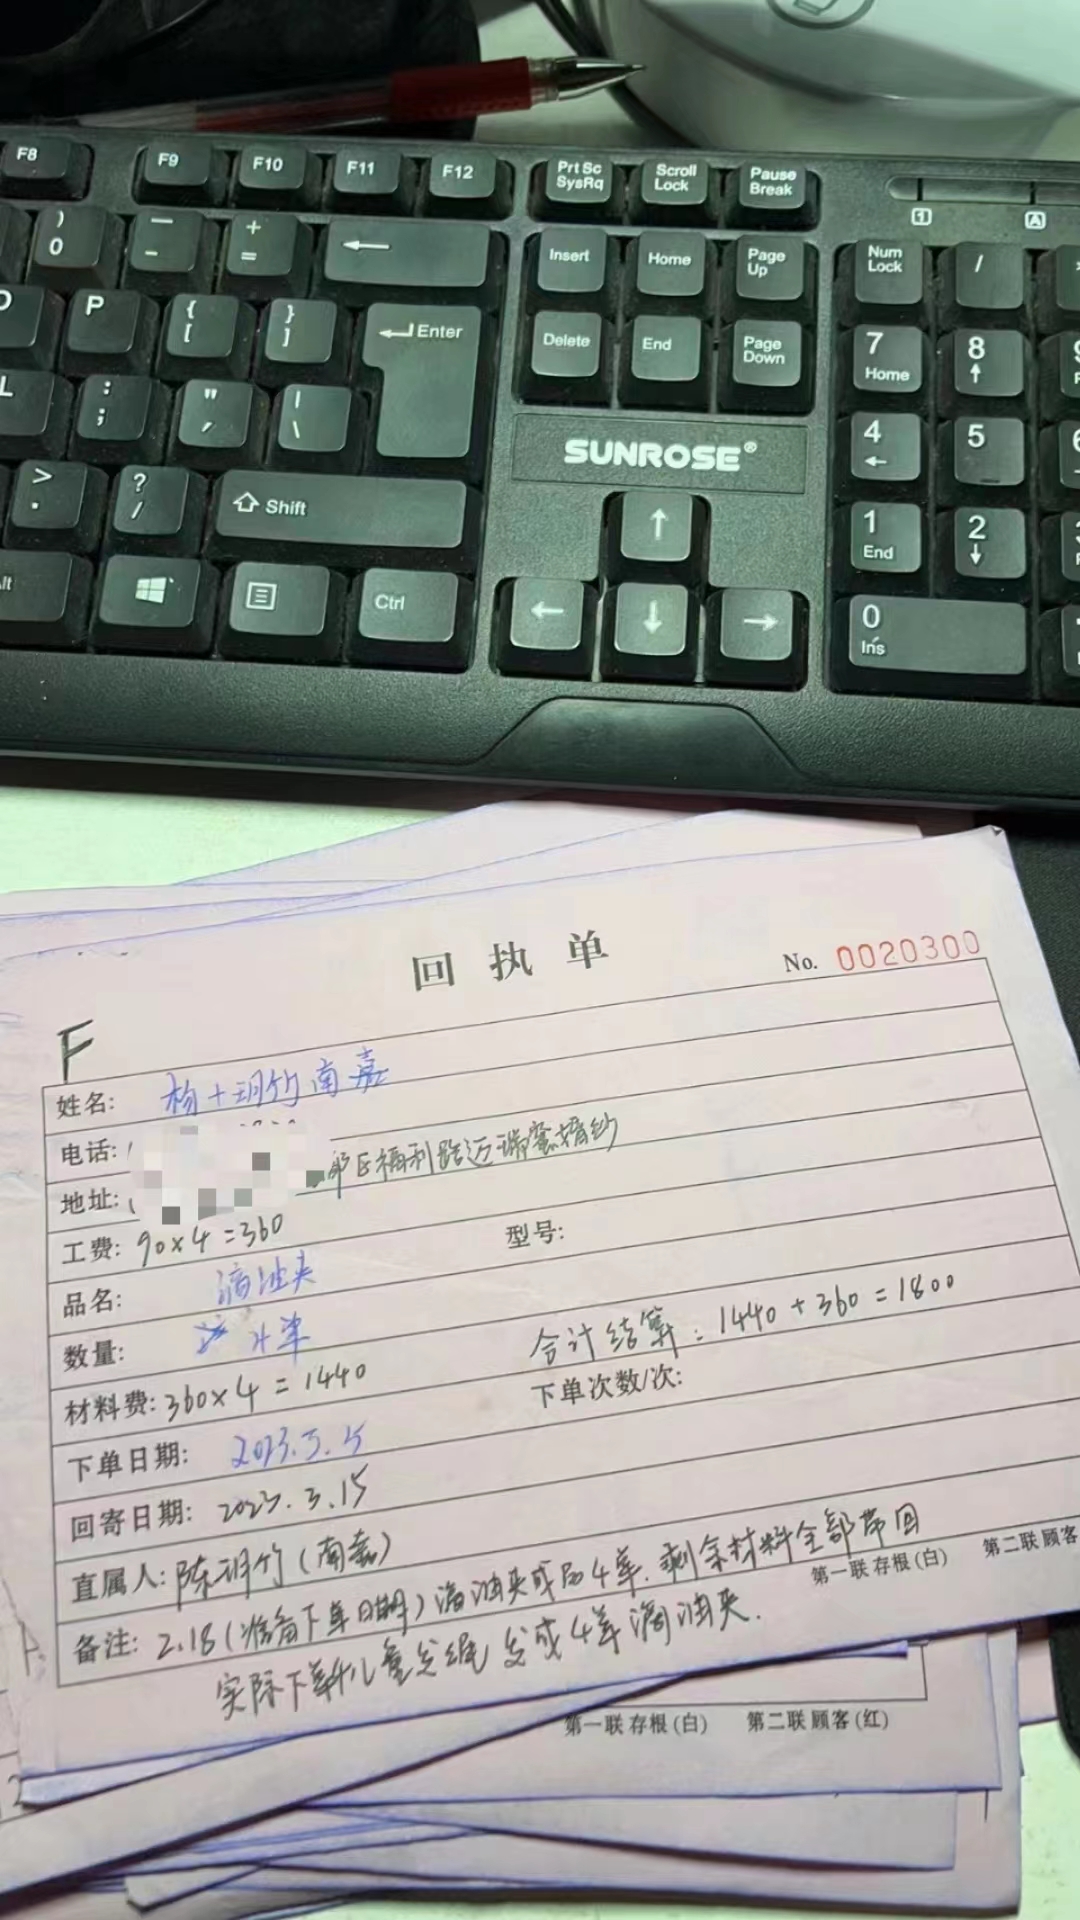 F8 F9 F10 F11 F12 Prt Sc SysRq Scroll Lock Pause Break
) 0 — - + = Insert Home Page Up Num Lock /
P { [ } ] Enter Delete End Page Down 7 Home 8
L : ; " , | \ SUNROSE® 4 5
> . ? / Shift 1 End 2
Ctrl 0 Ins
回执单
No. 0020300
F
姓名: 杨十玥竹南嘉
电话:
地址: 区福利路迈瑞蜜婚纱
工费: 90×4=360 型号:
品名: 滴油夹
数量: 单
合计结算: 1440+360=1800
材料费: 360×4=1440
下单次数/次:
下单日期: 2023.3.5
回寄日期: 2023.3.15
直属人: 陈玥竹(南嘉)
备注: 2.18(准备下单日期)滴油夹成品4单.剩余材料全部带回
实际下单 4单滴油夹.
第一联存根(白) 第二联顾客
第一联存根(白) 第二联顾客(红)